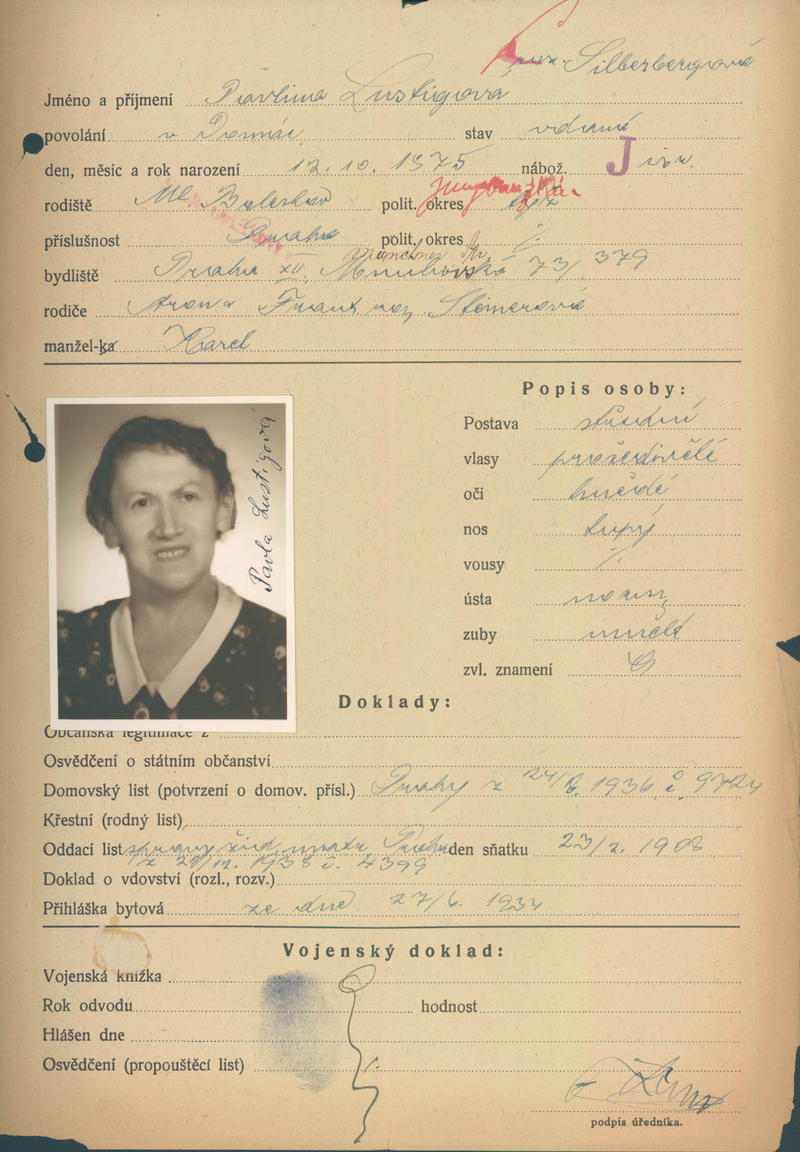 roz. Silberbergrová
Jméno a příjmení Pavlina Lustigova
povolání v Domác. stav vdaná
den, měsíc a rok narození 12. 10. 1875 nábož. J isr.
rodiště Ml. Boleslav polit. okres Jungbunzlau
příslušnost Praha polit. okres ./.
Münchner Str.
bydliště Praha XII, Mnichovská 73/379
rodiče Arona Frant. roz.
manžel-ka Karel
Popis osoby:
Postava střední
vlasy prošedivělé
oči hnědé
nos tupý
vousy ./.
ústa norm.
zuby umělé
zvl. znamení
Pavla Lustigová
Doklady:
Občanská legitimace z
Osvědčení o státním občanství
Domovský list (potvrzení o domov. přísl.) Prahy z 24/8. 1936 č. 9724
Křestní (rodný list)
Oddací list správy žid. matr. Praha den sňatku 23/2. 1908
z 29/12. 1938 č. 4399
Doklad o vdovství (rozl., rozv.)
Přihláška bytová ze dne 27/6. 1934
Vojenský doklad:
Vojenská knížka
Rok odvodu hodnost
Hlášen dne
Osvědčení (propouštěcí list) ./.
podpis úředníka.